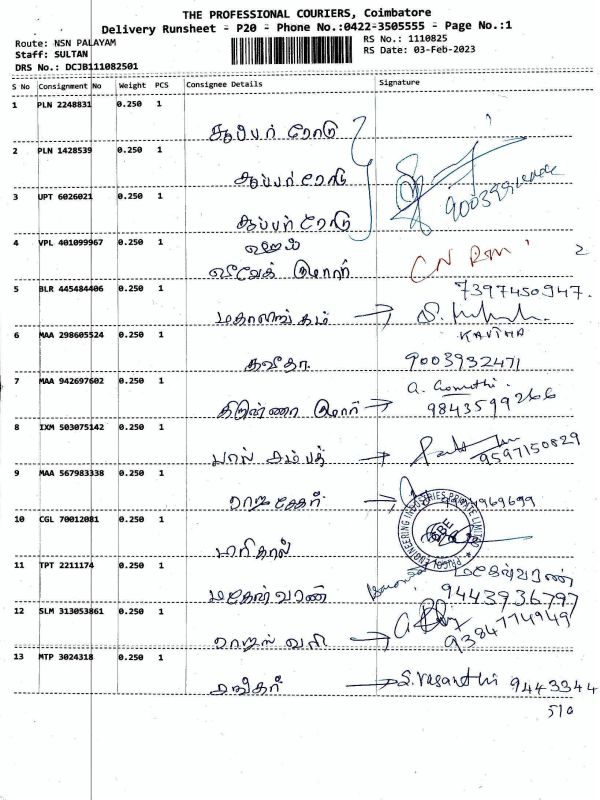 THE PROFESSIONAL COURIERS, Coimbatore
Delivery Runsheet - P20 - Phone No.:0422-3505555 - Page No.:1
Route: NSN PALAYAM
RS No.: 1110825
Staff: SULTAN
RS Date: 03-Feb-2023
DRS No.: DCJB111082501
S No Consignment No Weight PCS Consignee Details Signature
1 PLN 2248831 0.250 1
சூப்பர் ரோடு
2 PLN 1428539 0.250 1
சூப்பர் ரோடு
3 UPT 6026021 0.250 1
சூப்பர் ரோடு
4 VPL 401099967 0.250 1
விவேக் குமார்
2
5 BLR 445484406 0.250 1
7397450947.
மகாலிங்கம்
KAVITHA
6 MAA 298605524 0.250 1
கவிதா
9003932471
7 MAA 942697602 0.250 1
a. Gomathi.
குமார்
9843599266
8 IXM 503075142 0.250 1
பால் சம்பத்
9597150829
9 MAA 567983338 0.250 1
ராஜசேகர்
10 CGL 70012081 0.250 1
ENGINEERING INDUSTRIES PRIVATE LIMITED
11 TPT 2211174 0.250 1
மகேஸ்வரன்
மகேஸ்வரன்
9443936797
12 SLM 313053861 0.250 1
9384774949
13 MTP 3024318 0.250 1
S. Vasanthi 9443344
510